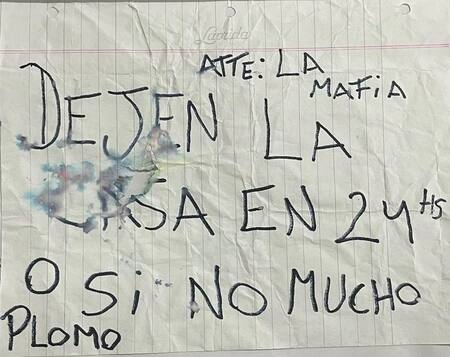 Lavida
ATTE: LA
MAFiA
DEJEN LA
CASA EN 24 HS
O Si NO MUCHO
PLOMO